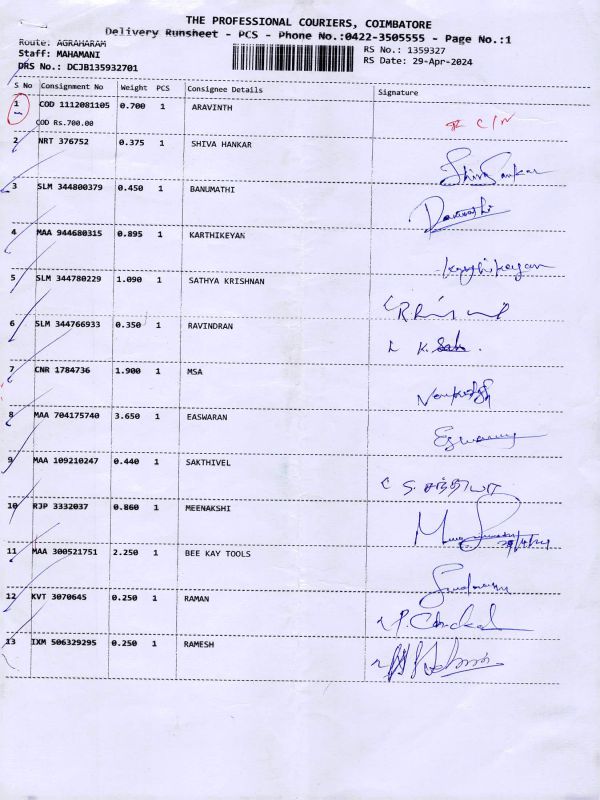 THE PROFESSIONAL COURIERS, COIMBATORE
Delivery Runsheet - PCS - Phone No.:0422-3505555 - Page No.:1
Route: AGRAHARAM
RS No.: 1359327
Staff: MAHAMANI
RS Date: 29-Apr-2024
DRS No.: DCJB135932701
S No Consignment No Weight PCS Consignee Details Signature
1 COD 1112081105 0.700 1 ARAVINTH
COD Rs.700.00
2 NRT 376752 0.375 1 SHIVA HANKAR
3 SLM 344800379 0.450 1 BANUMATHI
4 MAA 944680315 0.895 1 KARTHIKEYAN Karthikeyan
5 SLM 344780229 1.090 1 SATHYA KRISHNAN
6 SLM 344766933 0.350 1 RAVINDRAN
7 CNR 1784736 1.900 1 MSA
8 MAA 704175740 3.650 1 EASWARAN
9 MAA 109210247 0.440 1 SAKTHIVEL
10 RJP 3332037 0.860 1 MEENAKSHI
11 MAA 300521751 2.250 1 BEE KAY TOOLS
12 KVT 3070645 0.250 1 RAMAN
13 IXM 506329295 0.250 1 RAMESH